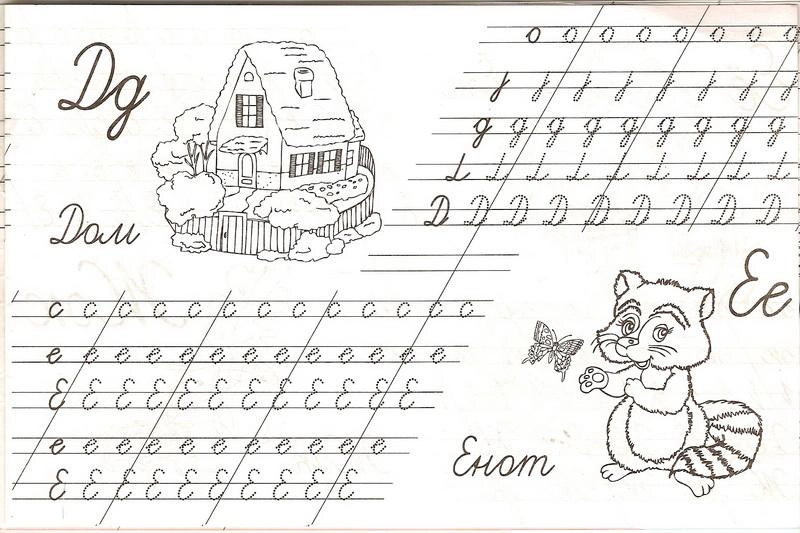 Дд
Дом
о о о о о о о о
д д д д д д д д д
Д Д Д Д Д Д Д Д Д
с с с с с с с с с с с с с с
е е е е е е е е е е е е е
Е Е Е Е Е Е Е Е Е Е Е Е
е е е е е е е е е е е
Е Е Е Е Е Е Е Е Е Е
Ее
Енот